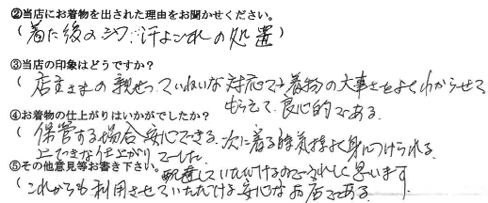 ②当店にお着物を出された理由をお聞かせください。
(着た後のシワ、汗よごれの処置)
③当店の印象はどうですか?
(店主さまの親せつ、ていねいな対応で着物の大事さをよくわからせて
もらえて、良心的である。
④お着物の仕上がりはいかがでしたか?
(保管する場合安心できる。次に着る時気持よく身につけられる。
上できな仕上がりでした。
⑤その他意見等お書き下さい。配達していただけるのでうれしく思います。
(これからも利用させていただける安心なお店である。